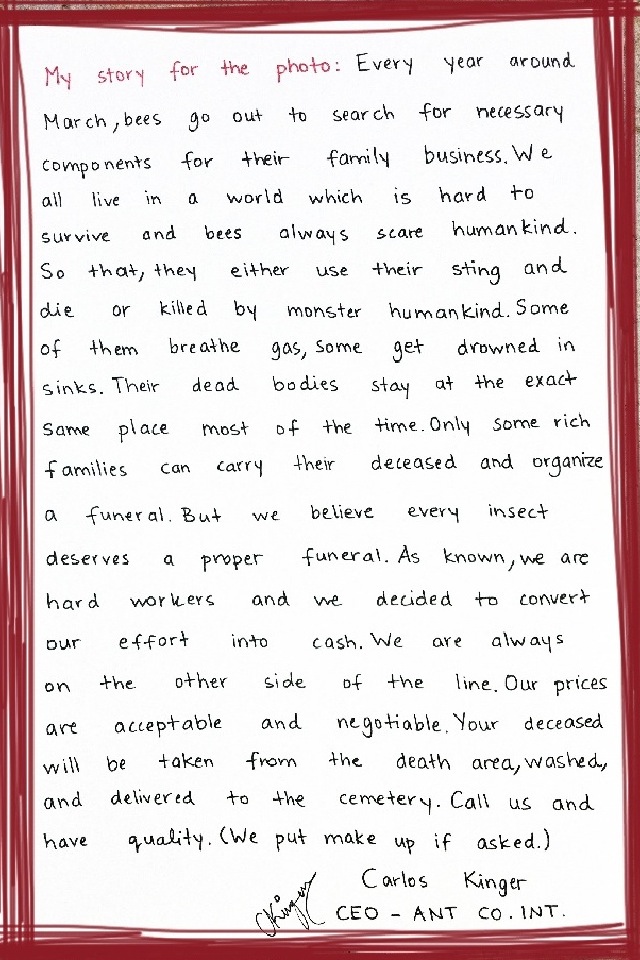 My story for the photo: Every year around
March, bees go out to search for necessary
components for their family business. We
all live in a world which is hard to
survive and bees always scare humankind.
So that, they either use their sting and
die or killed by monster humankind. Some
of them breathe gas, some get drowned in
sinks. Their dead bodies stay at the exact
same place most of the time. Only some rich
families can carry their deceased and organize
a funeral. But we believe every insect
deserves a proper funeral. As known, we are
hard workers and we decided to convert
our effort into cash. We are always
on the other side of the line. Our prices
are acceptable and negotiable. Your deceased
will be taken from the death area, washed,
and delivered to the cemetery. Call us and
have quality. (We put make up if asked.)
Carlos Kinger
CKinger
CEO - ANT CO. INT.